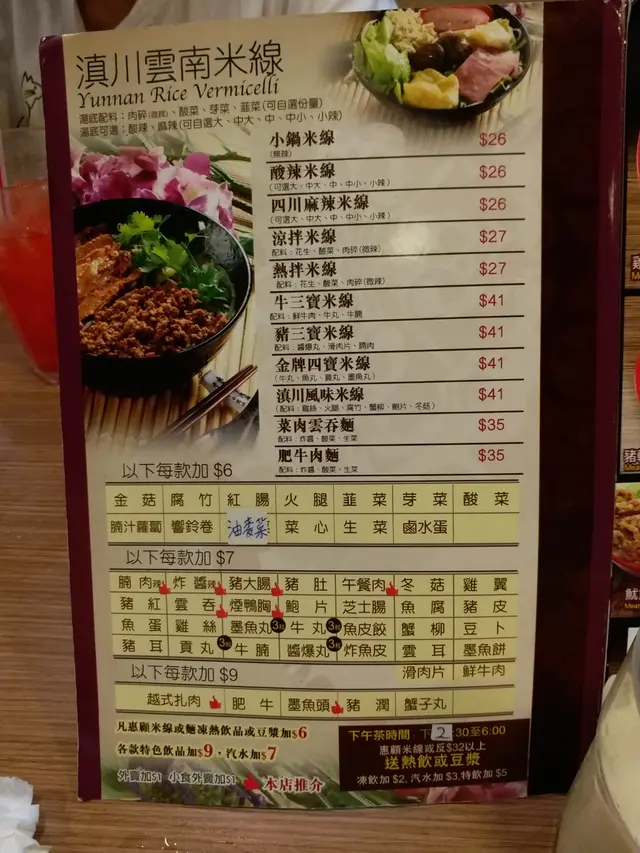 滇川雲南米線
Yunnan Rice Vermicelli
湯底配料：肉碎(微辣)、酸菜、芽菜、韮菜(可自選份量)
湯底可選：酸辣、麻辣(可自選大、中大、中、中小、小辣)
小鍋米線 $26
(無辣)
酸辣米線 $26
(可選大、中大、中、中小、小辣)
四川麻辣米線 $26
(可選大、中大、中、中小、小辣)
涼拌米線 $27
配料：花生、酸菜、肉碎(微辣)
熱拌米線 $27
配料：花生、酸菜、肉碎(微辣)
牛三寶米線 $41
配料：鮮牛肉、牛丸、牛腩
豬三寶米線 $41
配料：醬爆丸、滑肉片、腩肉
金牌四寶米線 $41
(牛丸、魚丸、貢丸、墨魚丸)
滇川風味米線 $41
(配料：雞絲、火腿、腐竹、蟹柳、鮑片、冬菇)
菜肉雲吞麵 $35
配料：炸醬、酸菜、生菜
肥牛肉麵 $35
配料：炸醬、酸菜、生菜
以下每款加 $6
金菇 腐竹 紅腸 火腿 韮菜 芽菜 酸菜
腩汁蘿蔔 響鈴卷 油麥菜 菜心 生菜 鹵水蛋
以下每款加 $7
腩肉辣 炸醬辣 豬大腸 豬肚 午餐肉 冬菇 雞翼
豬紅 雲吞 煙鴨胸 鮑片 芝士腸 魚腐 豬皮
魚蛋 雞絲 墨魚丸 3粒 牛丸 3粒 魚皮餃 蟹柳 豆卜
豬耳 貢丸 3粒 牛腩 醬爆丸 3粒 炸魚皮 雲耳 墨魚餅
滑肉片 鮮牛肉
以下每款加 $9
越式扎肉 肥牛 墨魚頭 豬潤 蟹子丸
凡惠顧米線或麵凍熱飲品或豆漿加$6
各款特色飲品加$9，汽水加$7
外賣加$1 小食外賣加$1 本店推介
下午茶時間 下2:30至6:00
惠顧米線或反$32以上
送熱飲或豆漿
凍飲加 $2, 汽水加 $3,特飲加 $5